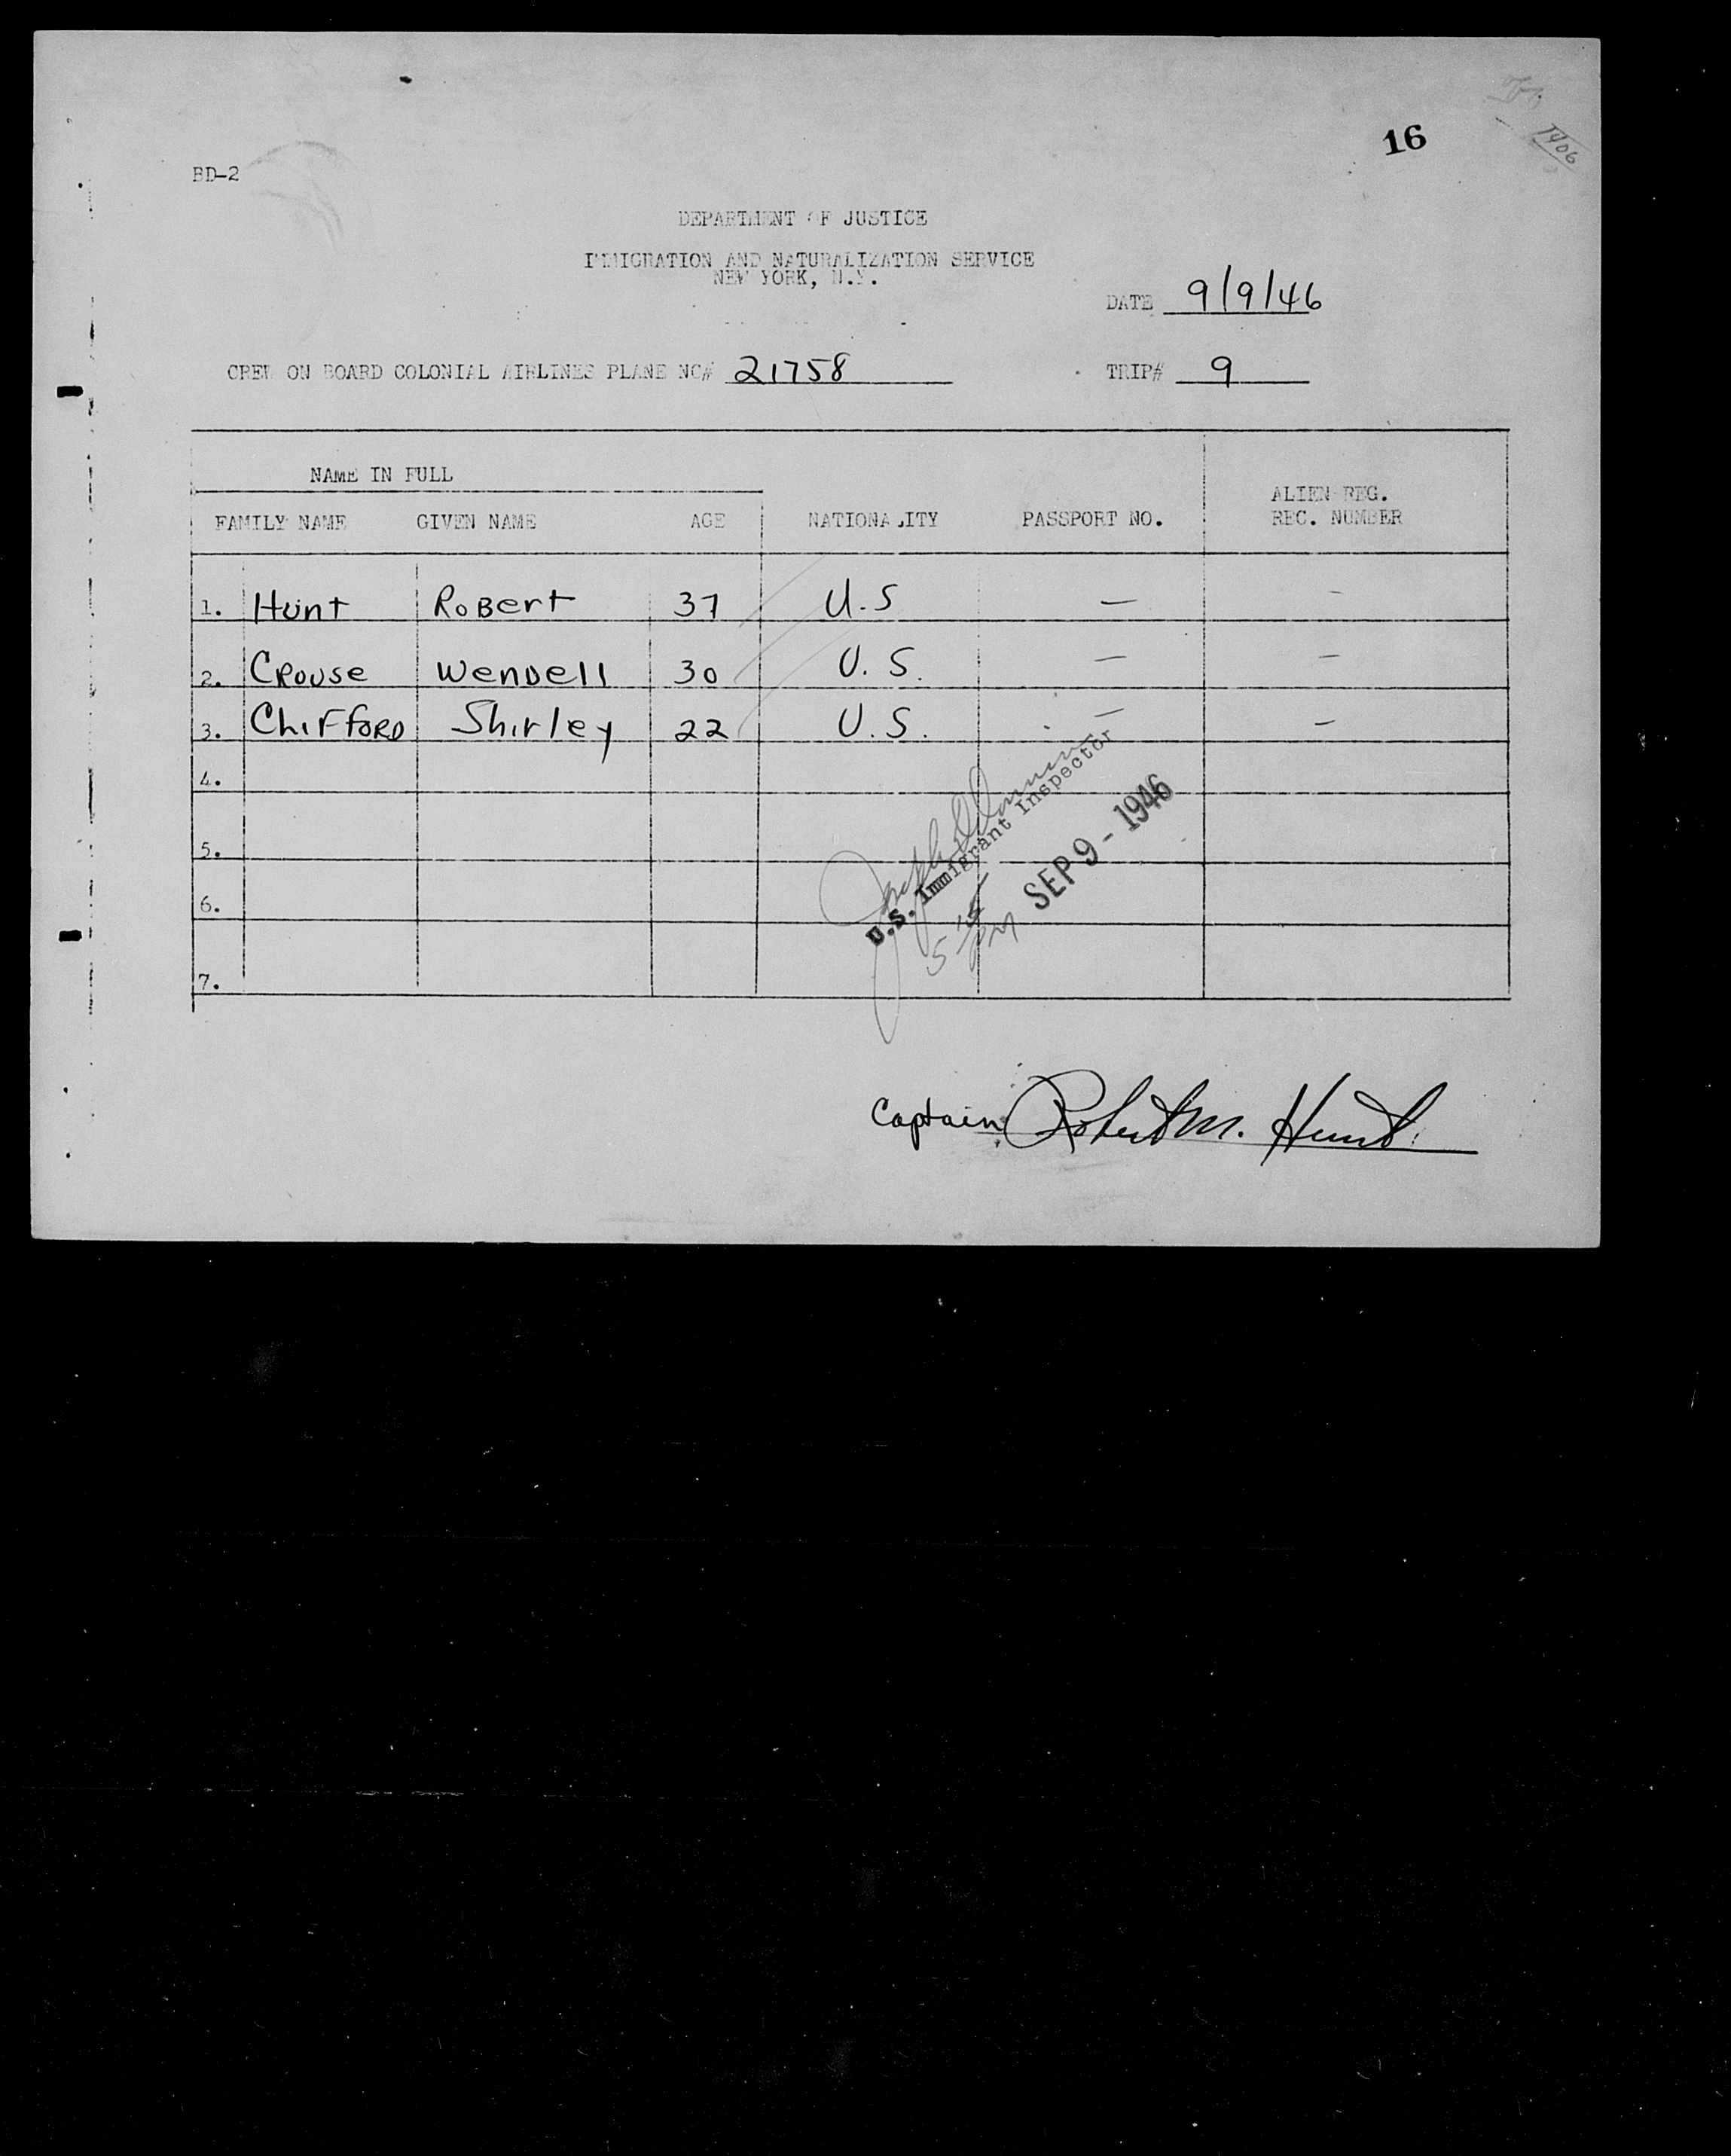 16
1406
BD-2
DEPARTMENT OF JUSTICE
IMMIGRATION AND NATURALIZATION SERVICE
NEW YORK, N.Y.
DATE 9/9/46
CREW ON BOARD COLONIAL AIRLINES PLANE NC# 21758 TRIP# 9
NAME IN FULL
ALIEN REG.
FAMILY NAME GIVEN NAME AGE NATIONALITY PASSPORT NO. REC. NUMBER
1. Hunt Robert 37 U.S — -
2. Crouse Wendell 30 U.S. — —
3. Chifford Shirley 22 U.S. — —
4.
5.
6.
7.
U.S. Immigrant Inspector
SEP 9 - 1946
5 15 PM
Captain Robert M. Hunt